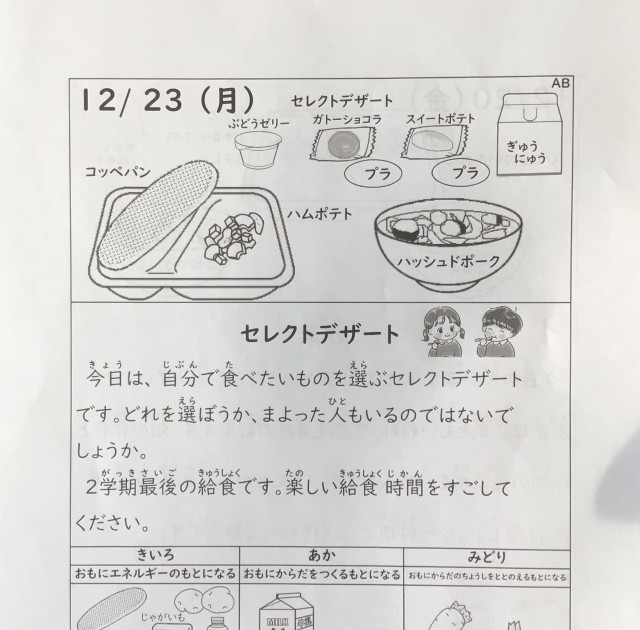 AB
12/ 23 (月)
セレクトデザート
ぶどうゼリー
ガトーショコラ
スイートポテト
プラ
プラ
ぎゅう
にゅう
コッペパン
ハムポテト
ハッシュドポーク
セレクトデザート
きょう じぶん た えら
今日は、自分で食べたいものを選ぶセレクトデザート
えら ひと
です。どれを選ぼうか、まよった人もいるのではないで
しょうか。
がっきさいご きゅうしょく たの きゅうしょく じかん
2学期最後の給食です。楽しい給食 時間をすごして
ください。
きいろ あか みどり
おもにエネルギーのもとになる おもにからだをつくるもとになる おもにからだのちょうしをととのえるもとになる
じゃがいも
MILK